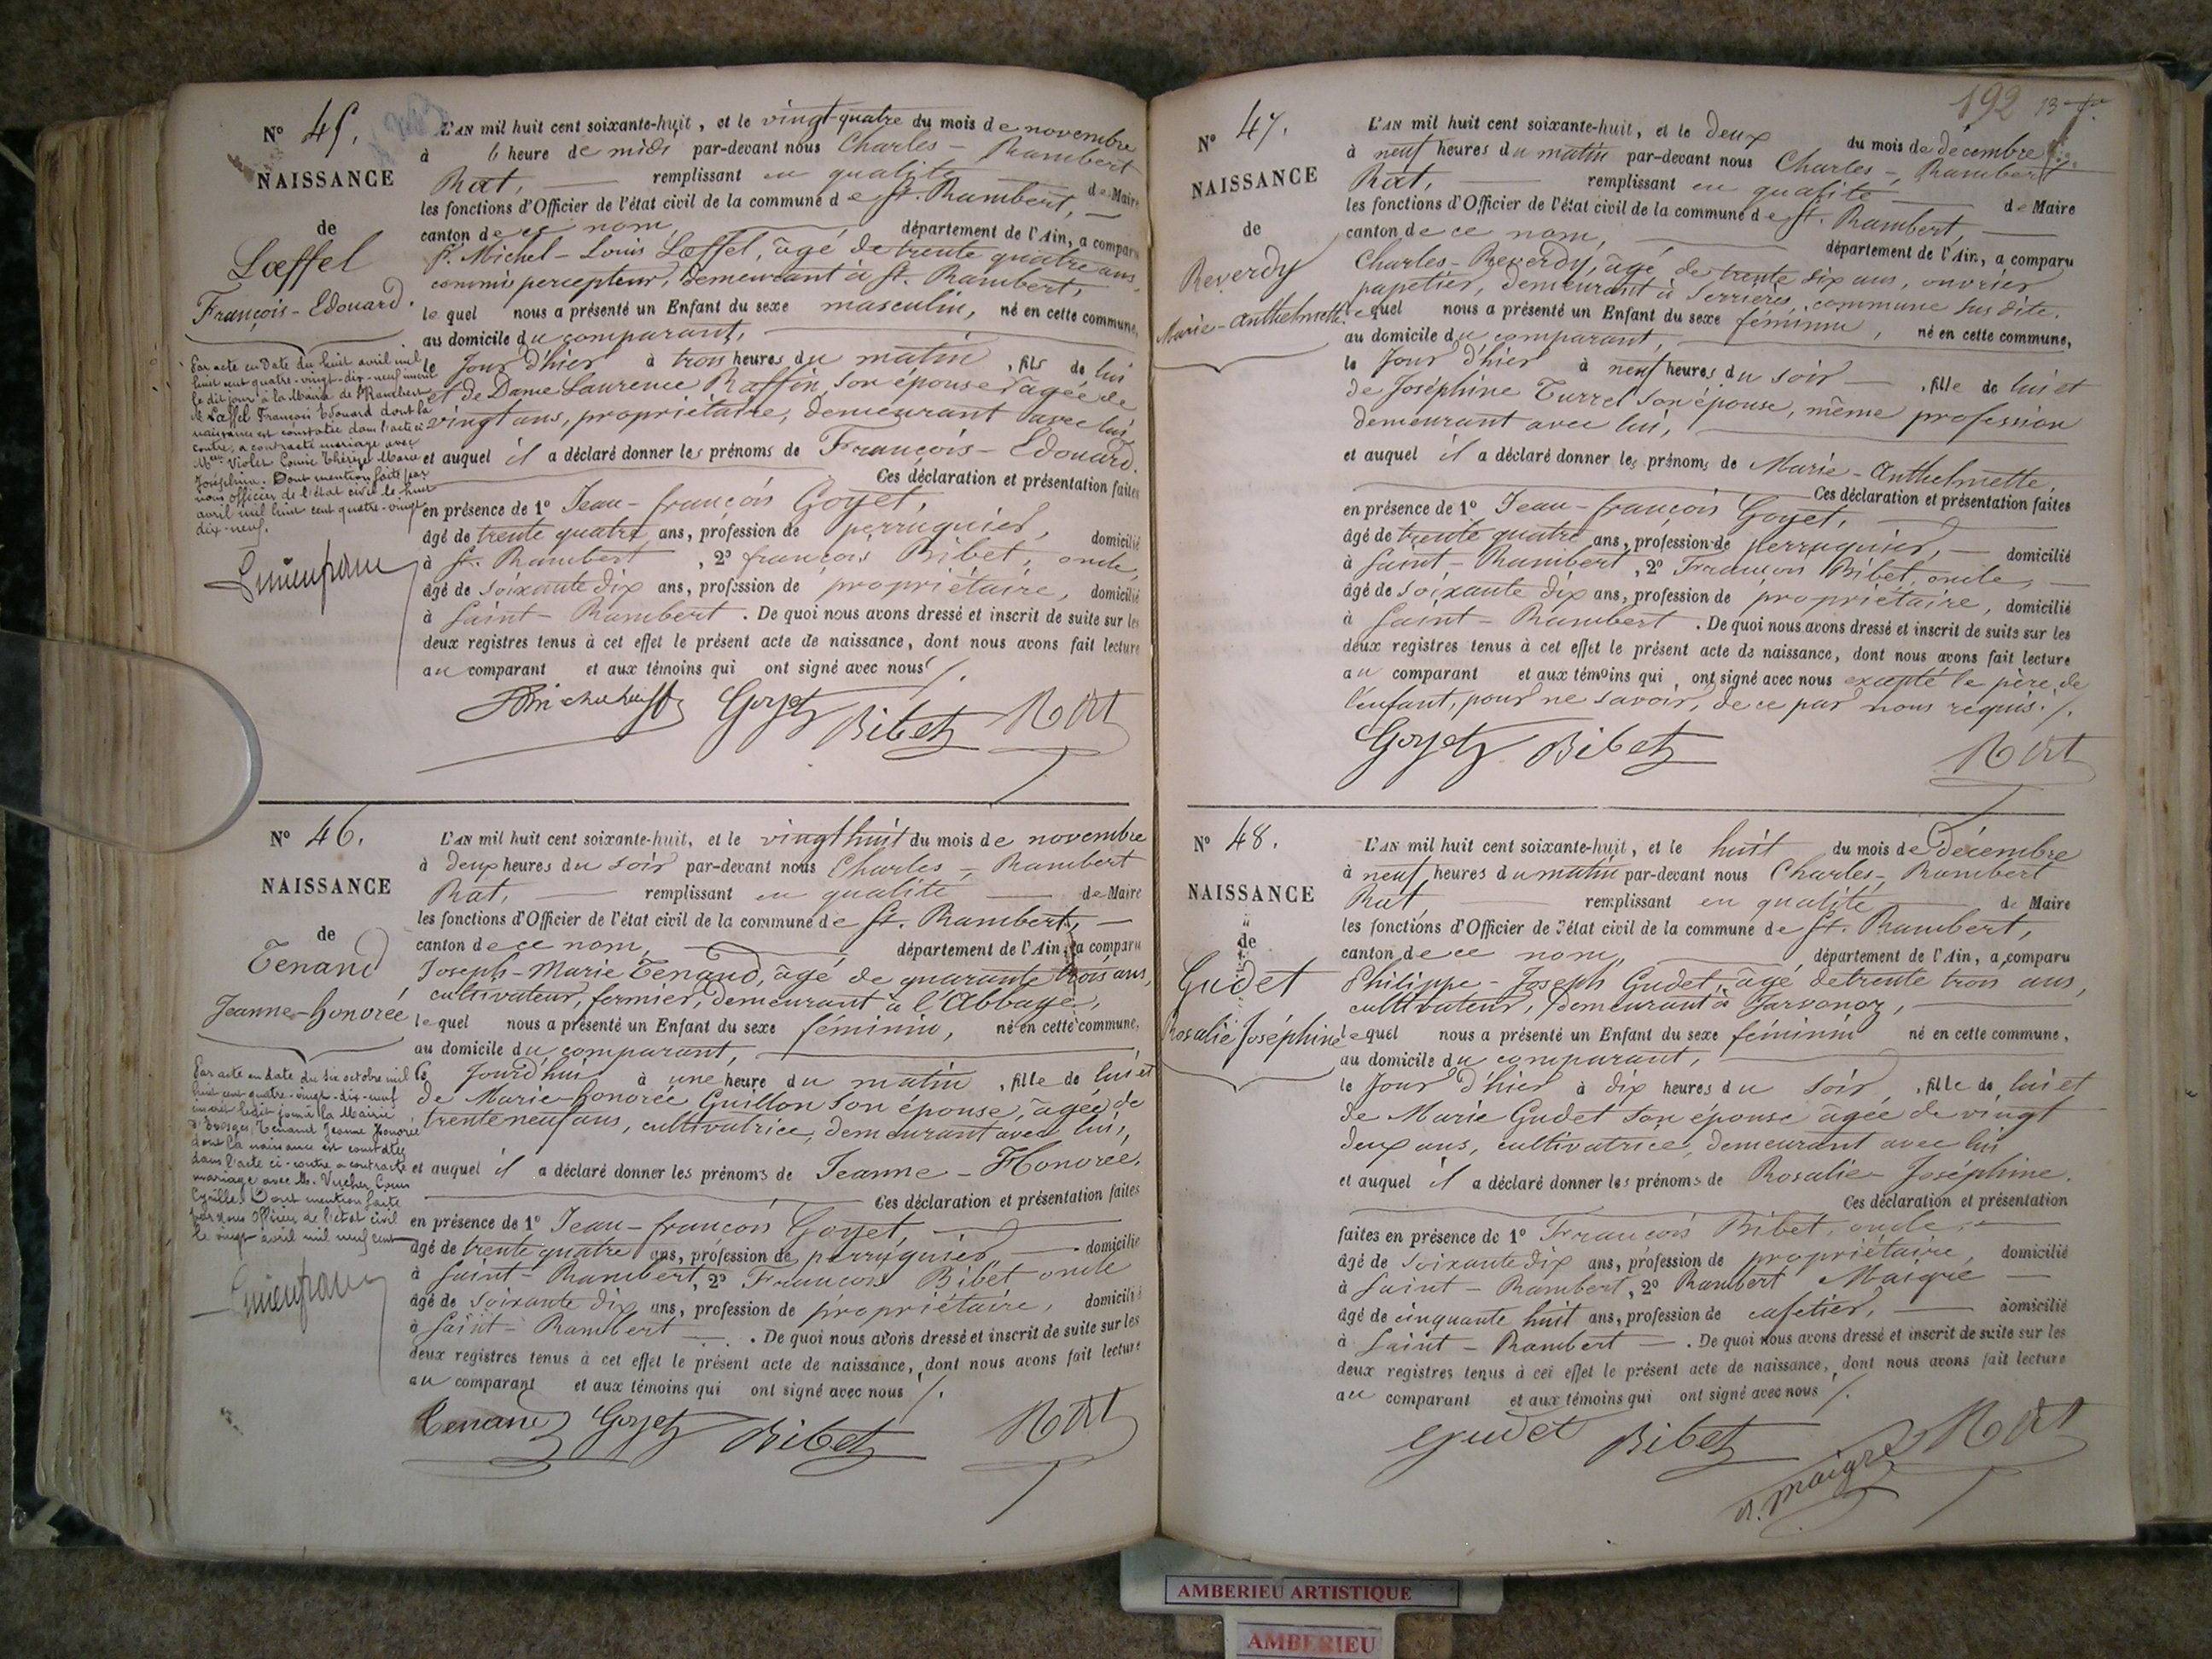 N° 45.
NAISSANCE
de
Lœffel
François-Edouard.
Par acte en date du huit avril mil
huit cent quatre-vingt-dix-neuf inscrit
le dit jour à la Mairie de St Rambert
M. Lœffel François Edouard dont la
naissance est constatée dans l'acte ci
contre, a contracté mariage avec
Melle Violet Louise Thérèze Marie
Joséphine. Dont mention faite par
nous officier de l'état civil le huit
avril mil huit cent quatre-vingt
dix-neuf.
L'AN mil huit cent soixante-huit, et le vingt-quatre du mois de novembre
à heure de midi par-devant nous Charles-Rambert
Rat, remplissant en qualité de Maire
les fonctions d'Officier de l'état civil de la commune de St. Rambert,
canton de ce nom, département de l'Ain, a comparu
Sr. Michel-Louis Lœffel, âgé de trente quatre ans,
commis percepteur, demeurant à St. Rambert,
lequel nous a présenté un Enfant du sexe masculin, né en cette commune,
au domicile du comparant,
le Jour d'hier à trois heures du matin, fils de lui
et de Dame Laurence Raffin, son épouse âgée de
vingt ans, propriétaire, demeurant avec lui,
et auquel il a déclaré donner les prénoms de François-Edouard.
Ces déclaration et présentation faites
en présence de 1° Jean-françois Goyet,
âgé de trente quatre ans, profession de perruquier, domicilié
à St. Rambert, 2° françois Bibet, oncle,
âgé de soixante dix ans, profession de propriétaire, domicilié
à Saint-Rambert. De quoi nous avons dressé et inscrit de suite sur les
deux registres tenus à cet effet le présent acte de naissance, dont nous avons fait lecture
au comparant et aux témoins qui ont signé avec nous ./.
Goyet Bibet Rat
N° 46.
NAISSANCE
de
Tenand
Jeanne-honorée
Par acte en date du six octobre mil
huit cent quatre-vingt-dix-neuf
inscrit ledit jour à la Mairie
d'Evosges, Tenand Jeanne Honorée
dont la naissance est constatée
dans l'acte ci-contre a contracté
mariage avec M. Vucher Louis
Cyrille. Dont mention faite
par nous Officier de l'état civil
le vingt avril mil neuf cent
L'AN mil huit cent soixante-huit, et le vingt huit du mois de novembre
à deux heures du soir par-devant nous Charles-Rambert
Rat, remplissant en qualité de Maire
les fonctions d'Officier de l'état civil de la commune de St. Rambert,
canton de ce nom, département de l'Ain, a comparu
Joseph-Marie Tenand, âgé de quarante trois ans,
cultivateur, fermier, demeurant à l'Abbaye,
lequel nous a présenté un Enfant du sexe féminin, né en cette commune,
au domicile du comparant,
le Jourd'hui à une heure du matin, fille de lui et
de Marie-honorée Guillon son épouse, âgée de
trente neuf ans, cultivatrice, demeurant avec lui,
et auquel il a déclaré donner les prénoms de Jeanne-Honorée.
Ces déclaration et présentation faites
en présence de 1° Jean-françois Goyet
âgé de trente quatre ans, profession de perruquier, domicilié
à Saint-Rambert, 2° François Bibet oncle
âgé de soixante dix ans, profession de propriétaire, domicilié
à Saint-Rambert. De quoi nous avons dressé et inscrit de suite sur les
deux registres tenus à cet effet le présent acte de naissance, dont nous avons fait lecture
au comparant et aux témoins qui ont signé avec nous ./.
Tenand Goyet Bibet Rat
192
N° 47.
NAISSANCE
de
Reverdy
Marie-Anthelmette
L'AN mil huit cent soixante-huit, et le deux du mois de décembre
à neuf heures du matin par-devant nous Charles-Rambert
Rat, remplissant en qualité de Maire
les fonctions d'Officier de l'état civil de la commune de St. Rambert,
canton de ce nom, département de l'Ain, a comparu
Charles-Reverdy, âgé de trente six ans, ouvrier
papetier, demeurant à Serrières, commune sus dite.
lequel nous a présenté un Enfant du sexe féminin, né en cette commune,
au domicile du comparant,
le Jour d'hier à neuf heures du soir, fille de lui et
de Joséphine Turrel son épouse, même profession
demeurant avec lui,
et auquel il a déclaré donner les prénoms de Marie-Anthelmette.
Ces déclaration et présentation faites
en présence de 1° Jean-françois Goyet,
âgé de trente quatre ans, profession de perruquier, domicilié
à Saint-Rambert, 2° François Bibet, oncle,
âgé de soixante dix ans, profession de propriétaire, domicilié
à Saint-Rambert. De quoi nous avons dressé et inscrit de suite sur les
deux registres tenus à cet effet le présent acte de naissance, dont nous avons fait lecture
au comparant et aux témoins qui ont signé avec nous excepté le père de
l'enfant, pour ne savoir, de ce par nous requis ./.
Goyet Bibet Rat
N° 48.
NAISSANCE
de
Gudet
Rosalie Joséphine
L'AN mil huit cent soixante-huit, et le huit du mois de Décembre
à neuf heures du matin par-devant nous Charles-Rambert
Rat remplissant en qualité de Maire
les fonctions d'Officier de l'état civil de la commune de St. Rambert,
canton de ce nom, département de l'Ain, a comparu
Philippe-Joseph Gudet, âgé de trente trois ans,
cultivateur, demeurant à Javornoz,
lequel nous a présenté un Enfant du sexe féminin né en cette commune,
au domicile du comparant,
le Jour d'hier à dix heures du soir, fille de lui et
de Marie Gudet son épouse âgée de vingt
deux ans, cultivatrice, demeurant avec lui
et auquel il a déclaré donner les prénoms de Rosalie-Joséphine.
Ces déclaration et présentation
faites en présence de 1° François Bibet, oncle,
âgé de soixante dix ans, profession de propriétaire, domicilié
à Saint-Rambert, 2° Rambert Maigre
âgé de cinquante huit ans, profession de cafetier, domicilié
à Saint-Rambert. De quoi nous avons dressé et inscrit de suite sur les
deux registres tenus à cet effet le présent acte de naissance, dont nous avons fait lecture
au comparant et aux témoins qui ont signé avec nous ./.
Gudet Bibet R. Maigre Rat
AMBERIEU ARTISTIQUE
AMBERIEU